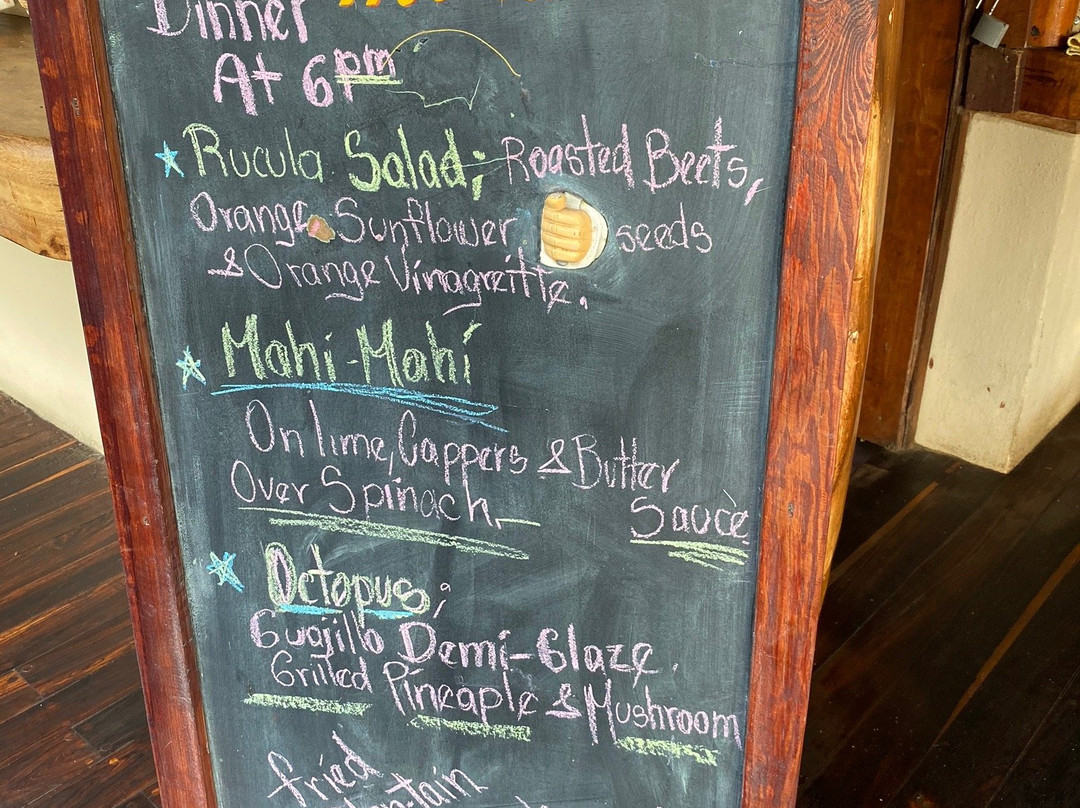 Dinner
At 6pm
Rucula Salad; Roasted Beets,
Orange Sunflower seeds
& Orange Vinagreitte.
Mahi-Mahi
On lime, Cappers & Butter
Over Spinach Sauce
Octopus;
Guajillo Demi-Glaze.
Grilled Pineapple & Mushroom
fried